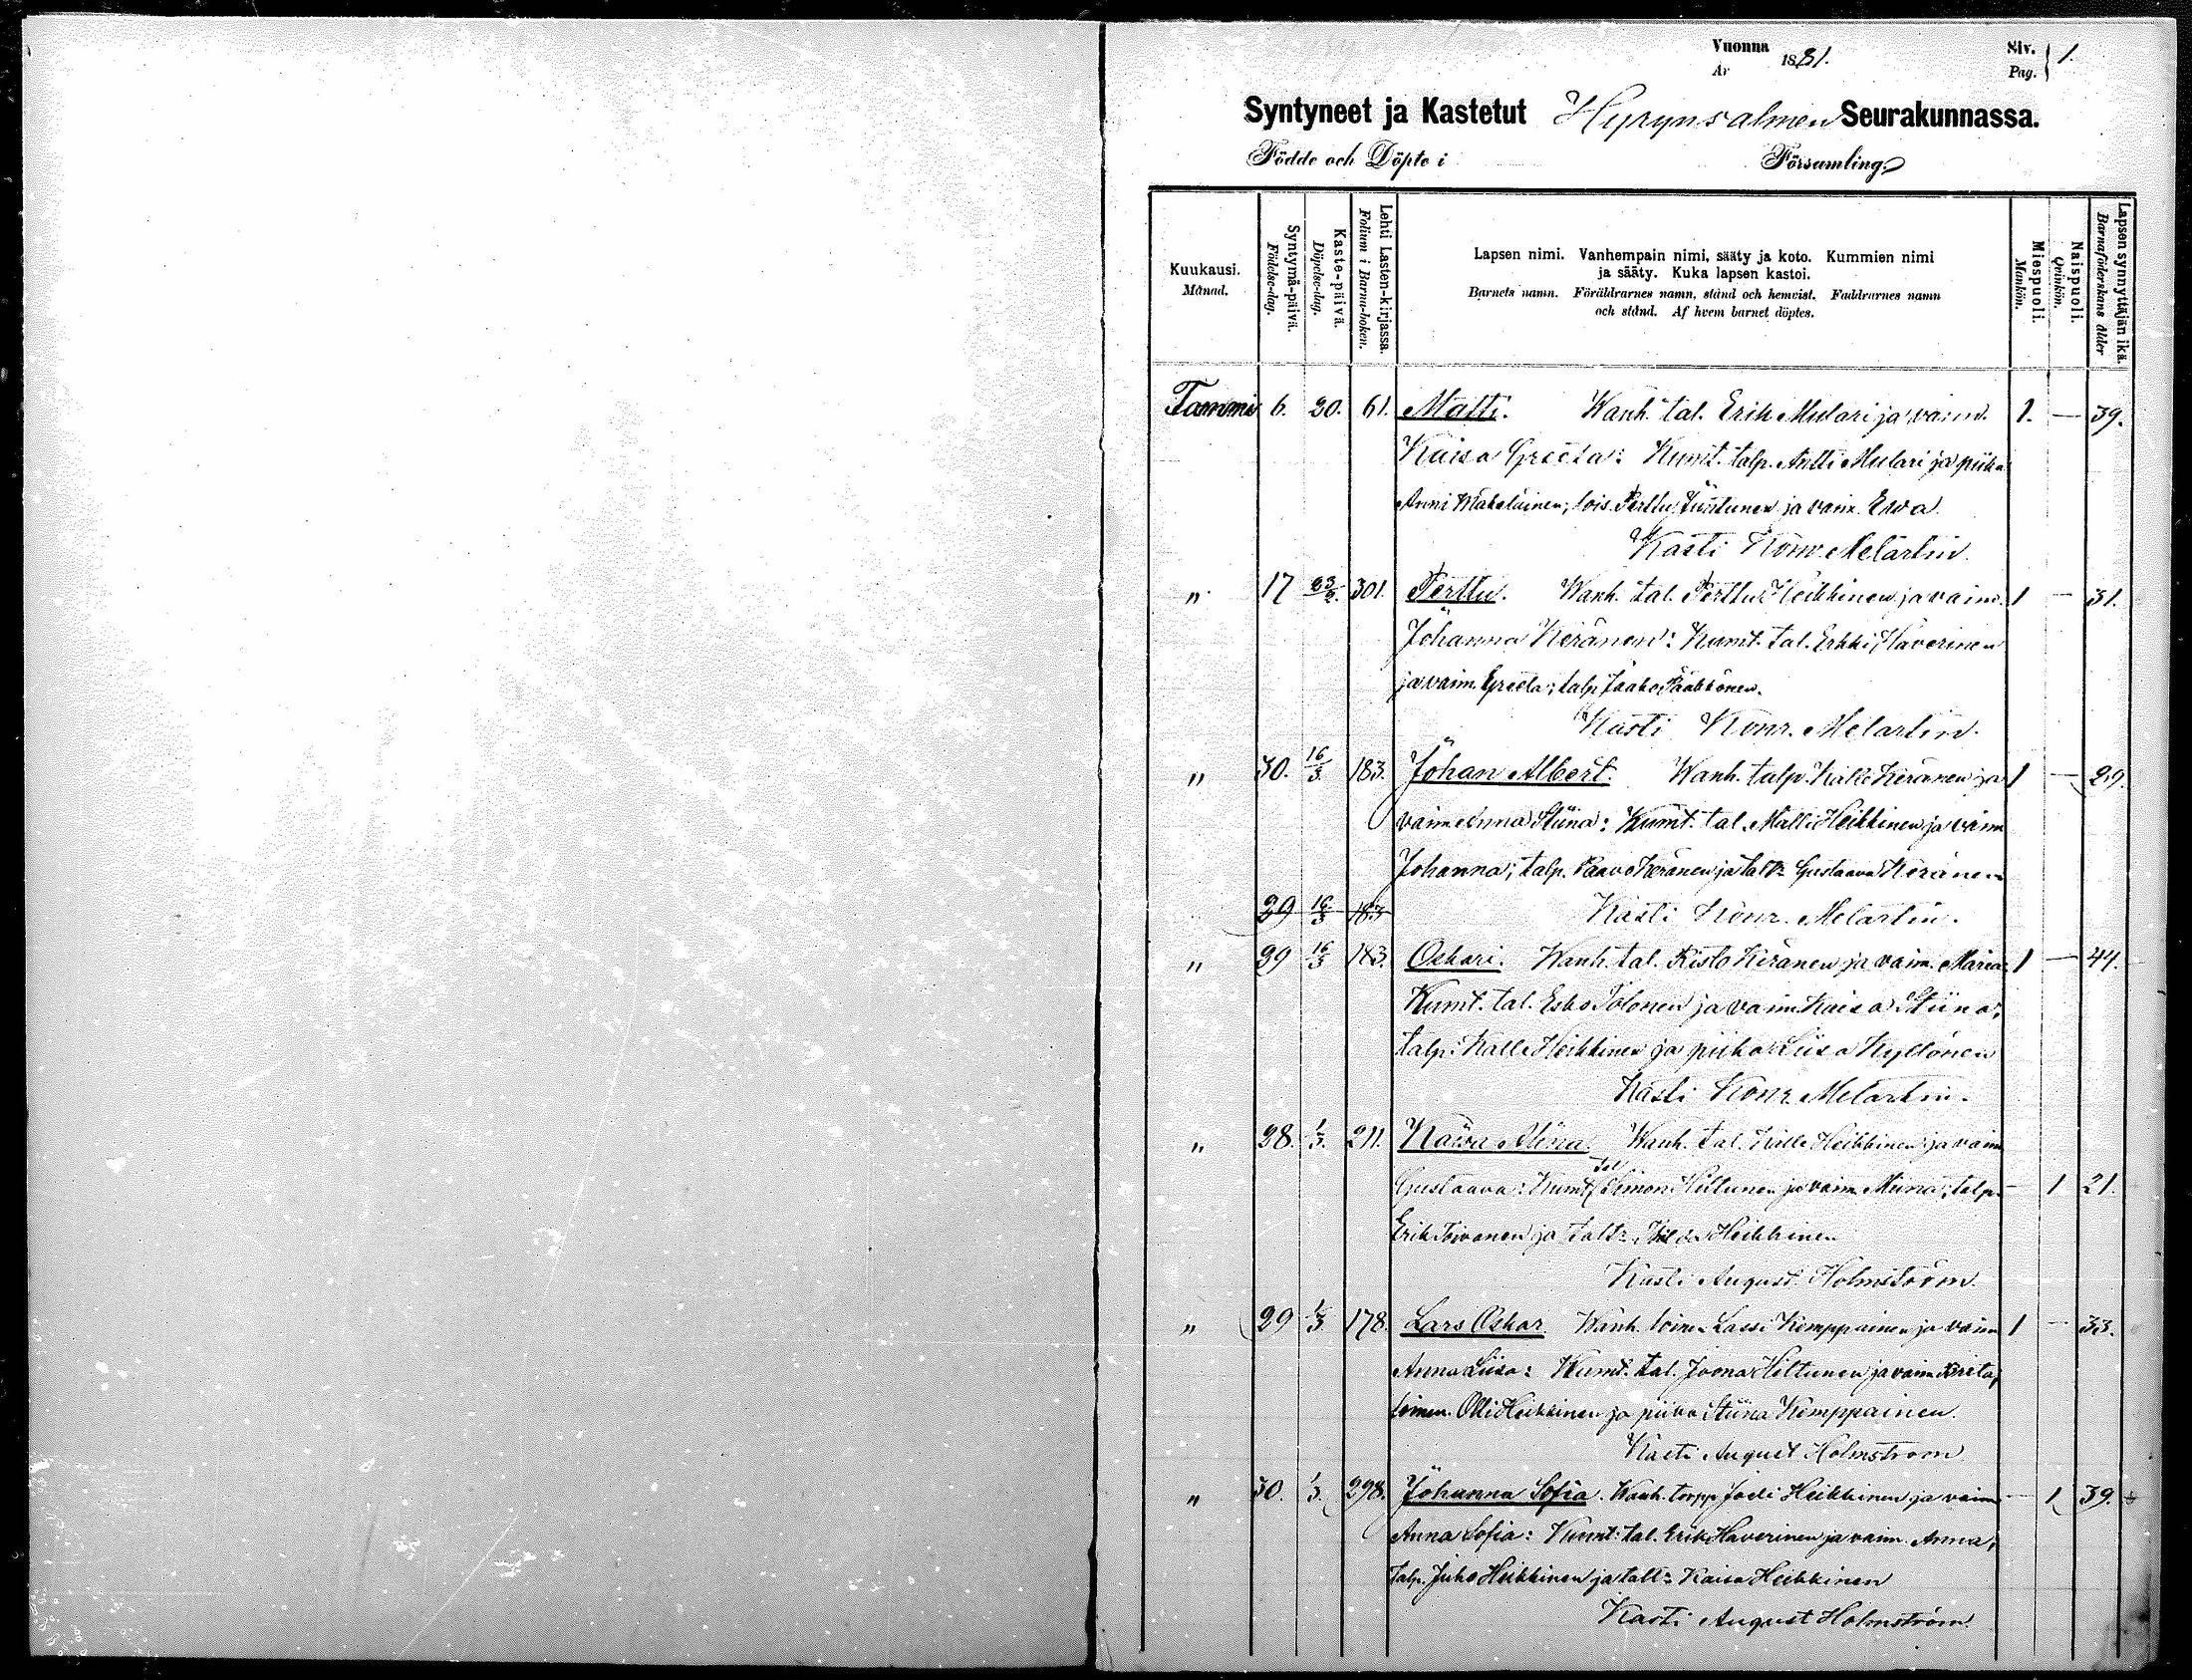 Vuonna 1881. Siv. 1.
År Pag.
Syntyneet ja Kastetut Hyrynsalmen Seurakunnassa.
Födde och Döpte i Församling.
Kuukausi. Månad.
Syntymä-päivä. Födelse-dag.
Kaste-päivä. Döpelse-dag.
Lehti Lasten-kirjassa. Folium i Barna-boken.
Lapsen nimi. Vanhempain nimi, sääty ja koto. Kummien nimi
ja sääty. Kuka lapsen kastoi.
Barnets namn. Föräldrarnes namn, stånd och hemvist. Faddrarnes namn
och stånd. Af hvem barnet döptes.
Miespuoli. Mankön.
Naispuoli. Qvinkön.
Lapsen synnyttäjän ikä. Barnaföderskans ålder
Tammi 6. 20. 61. Matti. Wanh. tal. Erik Mulari ja vaim. 1. — 39.
Kaisa Greeta: Kumt. talp. Antti Mulari ja piika
Anni Mäkeläinen; lois. Perttu Juntunen ja vaim. Ewa.
Kasti Konr. Melartin.
" 17 23/2. 301. Perttu. Wanh. tal. Perttu Heikkinen ja vaim. 1 — 31.
Johanna Keränen: Kumt. tal. Erkki Haverinen
ja vaim. Greeta; talp. Jaako Pääkkönen.
Kasti Konr. Melartin.
" 30. 16/3 183. Johan Albert. Wanh. talp. Kalle Keränen ja 1 — 29.
vaim Anna Stiina: Kumt. tal. Matti Heikkinen ja vaim
Johanna; talp. Paavo Keränen ja talt: Gustaava Keränen
29 16/3 183 Kasti Konr. Melartin.
" 29 16/3 143. Oskari. Wanh. tal. Risto Keränen ja vaim. Maria: 1 — 44.
Kumt. tal. Esko Tolonen ja vaim Kaisa Stiina;
talp. Kalle Heikkinen ja piika Liisa Kyllönen
Kasti Konr. Melartin.
" 28. 1/3. 211. Alina. Wanh. tal. Kalle Heikkinen ja vaim
Gustaava: Kumt tal Simon Hiltunen ja vaim Miina; talp. — 1 21.
Erik Toivanen ja talt: Hilda Heikkinen
Kasti August Holmström.
" 29 1/3 178. Lars Oskar. Wanh. loinen Lassi Kemppainen ja vaim 1 — 33.
Anna Liisa: Kumt. tal. Joona Hiltunen ja vaim Brita;
loinen. Olli Heikkinen ja piika Stiina Kemppainen.
Kasti August Holmström
" 30. 1/3. 298. Johanna Sofia. Wanh. torpp. Heikkinen ja vaim — 1 39.
Anna Sofia: Kumt: tal. Erik Haverinen ja vaim. Anna;
talp. Juho Heikkinen ja talt: Kaisa Heikkinen
Kasti August Holmström.